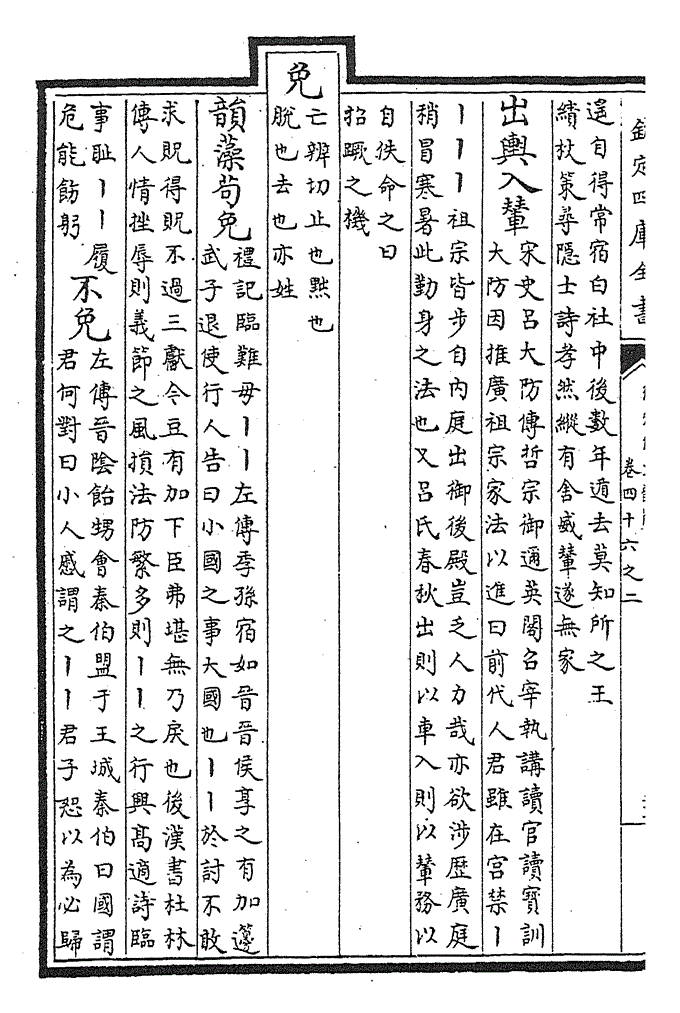 欽定四庫全書
卷四十六之二
遥自得常宿白社中後數年遁去莫知所之王
績杖策尋隱士詩孝然縱有舍威輦遂無家
出輿入輦
宋史吕大防傳哲宗御邇英閣召宰執講讀官讀寳訓
大防因推廣祖宗家法以進曰前代人君雖在宫禁丨
丨丨丨祖宗皆步自内庭出御後殿豈乏人力哉亦欲涉歴廣庭
稍冒寒暑此勤身之法也又吕氏春秋出則以車入則以輦務以
自佚命之曰
招蹶之機
免
亡辨切止也黙也
脱也去也亦姓
韻藻苟免
禮記臨難毋丨丨左傳季孫宿如晉晉侯享之有加籩
武子退使行人告曰小國之事大國也丨丨於討不敢
求貺得貺不過三獻今豆有加下臣弗堪無乃戾也後漢書杜林
傳人情挫辱則義節之風損法防繁多則丨丨之行興高適詩臨
事耻丨丨履
危能飭躬
不免
左傳晉陰飴甥會秦伯盟于王城秦伯曰國謂
君何對曰小人慼謂之丨丨君子恕以為必歸